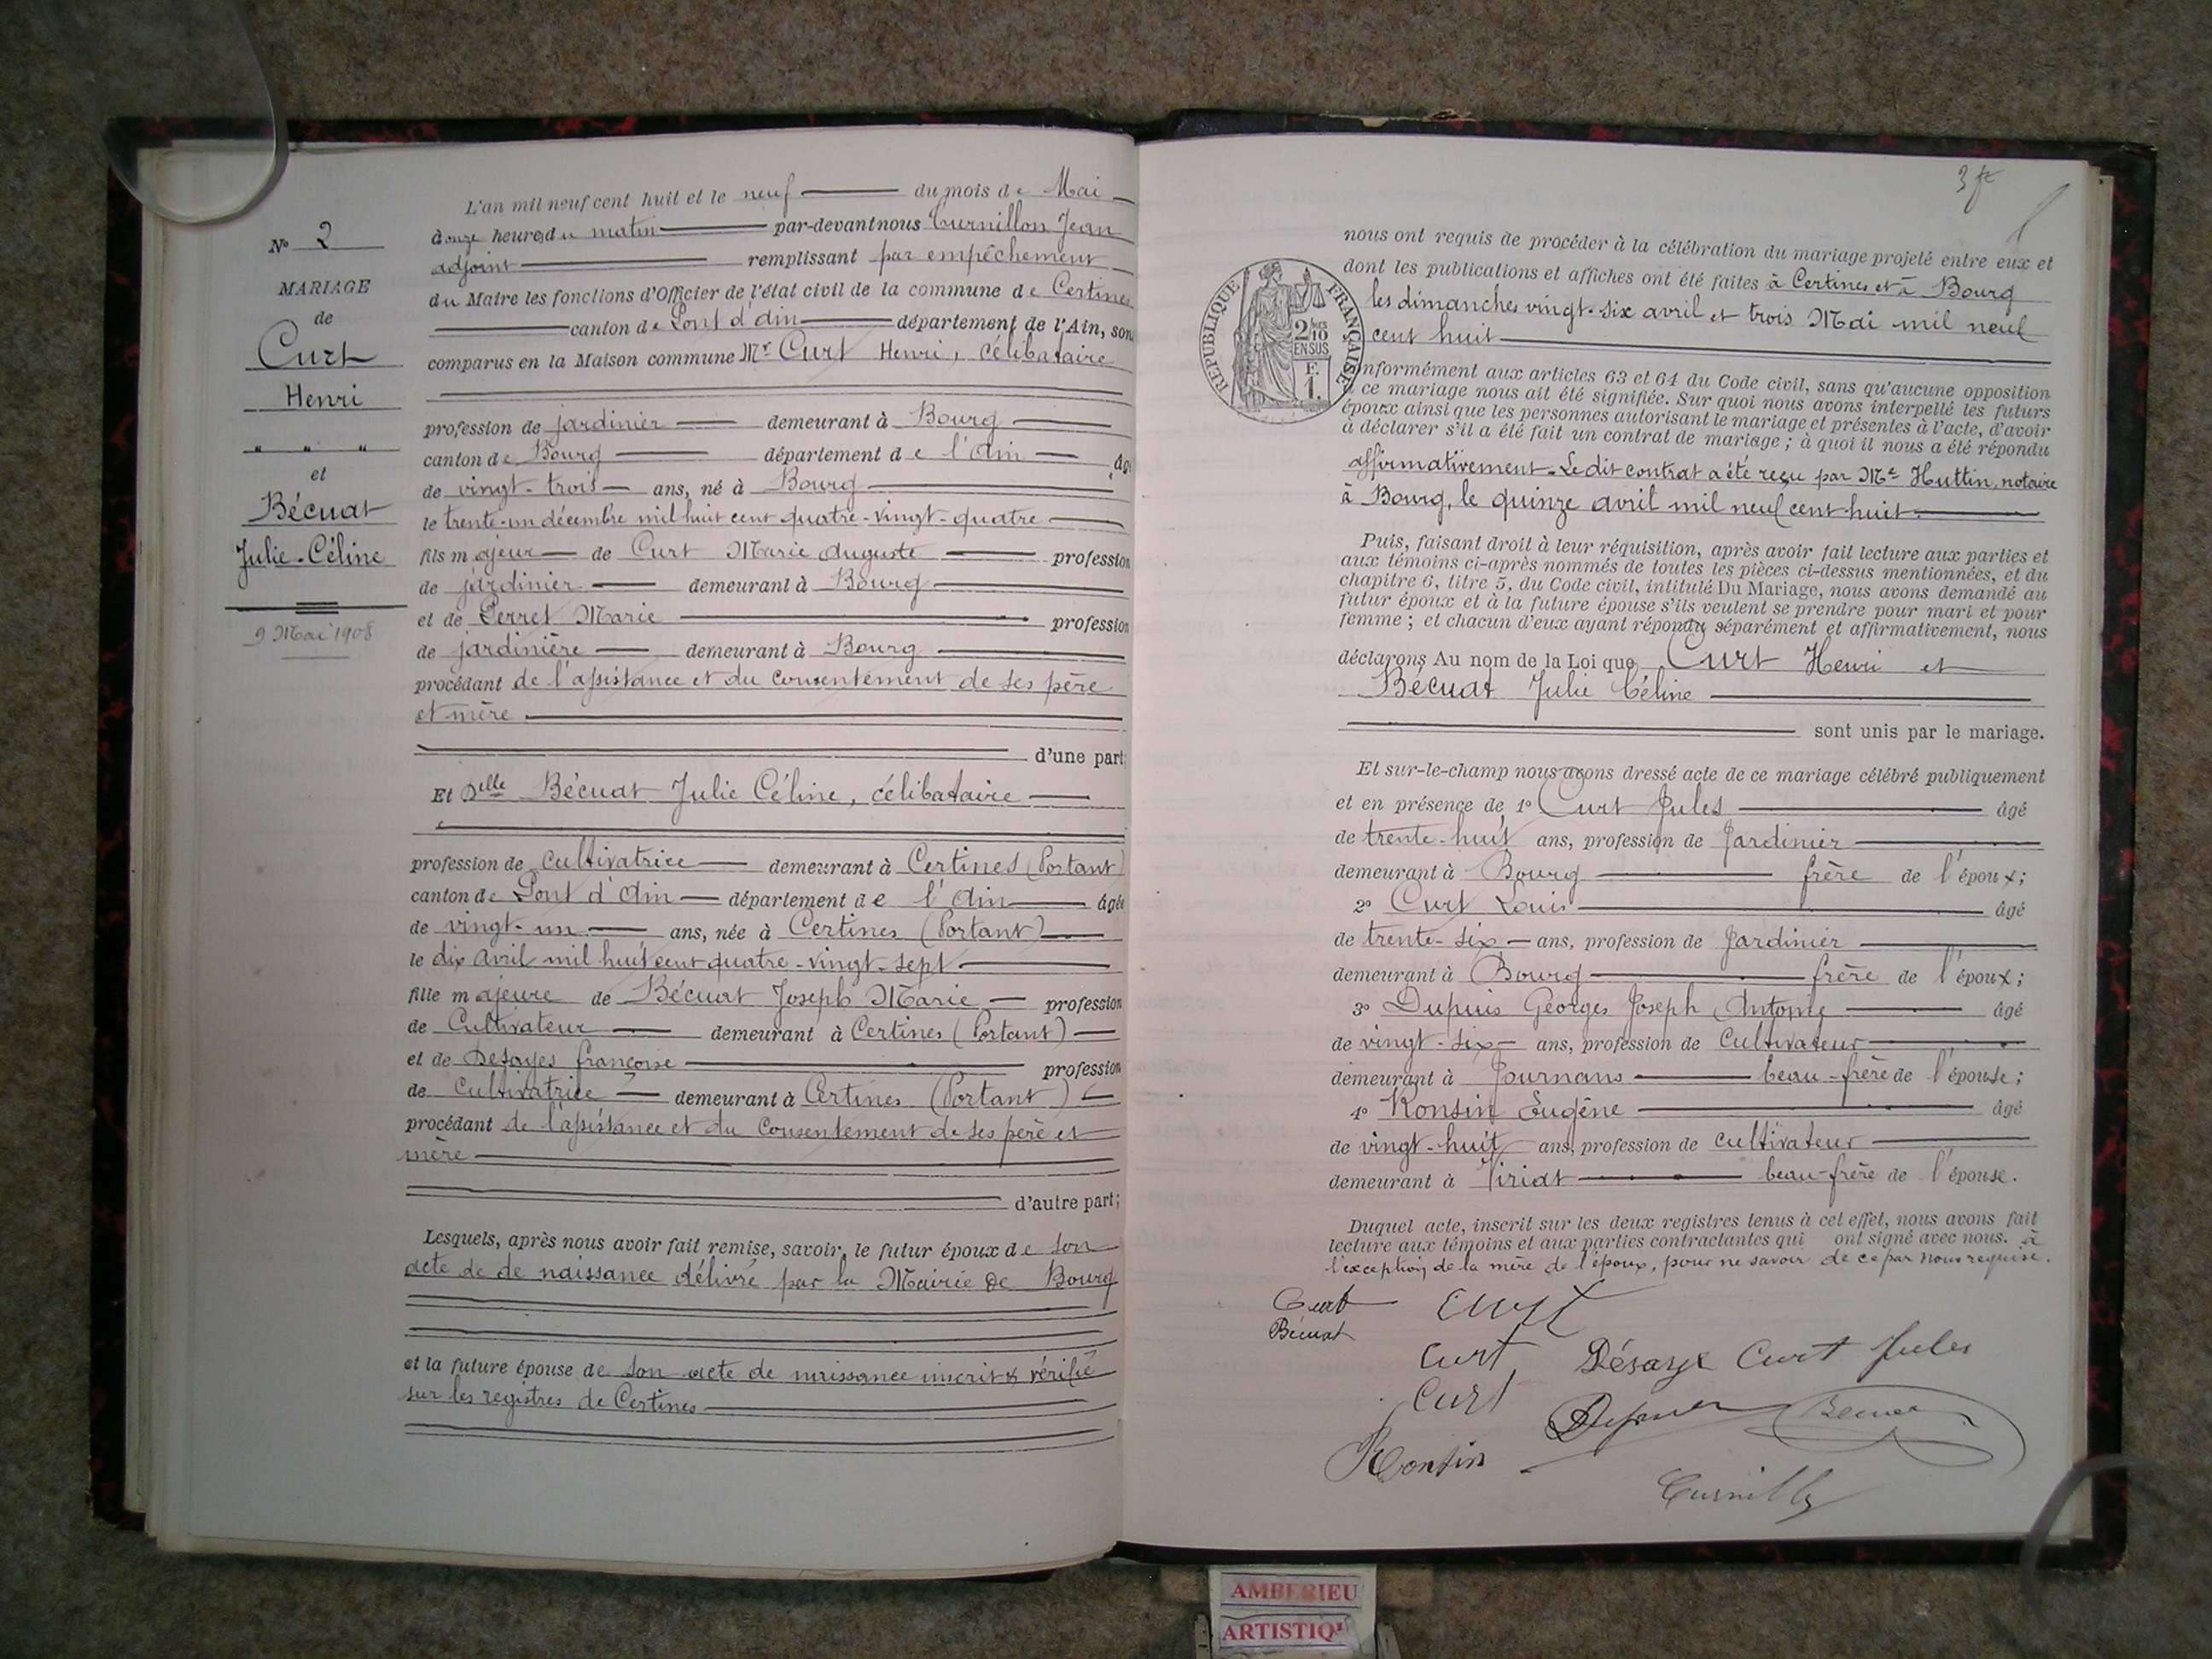 N° 2
MARIAGE
de
Curt
Henri
" " "
et
Bécuat
Julie-Céline
9 Mai 1908
L'an mil neuf cent huit et le neuf du mois de Mai
à onze heures du matin par-devant nous Curnillon Jean
adjoint remplissant par empêchement
du Maire les fonctions d'Officier de l'état civil de la commune de Certines
canton de Pont d'Ain département de l'Ain, son
comparus en la Maison commune Mr Curt Henri, célibataire
profession de jardinier demeurant à Bourg
canton de Bourg département de l'Ain âg
de vingt-trois ans, né à Bourg
le trente-un décembre mil huit cent quatre-vingt-quatre
fils majeur de Curt Marie Auguste profession
de jardinier demeurant à Bourg
et de Perret Marie profession
de jardinière demeurant à Bourg
procédant de l'assistance et du consentement de ses père
et mère
d'une part;
Et Delle Bécuat Julie Céline, célibataire
profession de Cultivatrice demeurant à Certines (Portant)
canton de Pont d'Ain département de l'Ain âgée
de vingt-un ans, née à Certines (Portant)
le dix Avril mil huit cent quatre-vingt-sept
fille majeure de Bécuat Joseph Marie profession
de Cultivateur demeurant à Certines (Portant)
et de Desayes françoise profession
de Cultivatrice demeurant à Certines (Portant)
procédant de l'assistance et du Consentement de ses père et
mère
d'autre part;
Lesquels, après nous avoir fait remise, savoir, le futur époux de son
acte de de naissance délivré par la Mairie de Bourg
et la future épouse de son acte de naissance inscrit & vérifié
sur les registres de Certines
3 ft
nous ont requis de procéder à la célébration du mariage projeté entre eux et
dont les publications et affiches ont été faites à Certines et à Bourg
les dimanches vingt-six avril et trois Mai mil neuf
cent huit
RÉPUBLIQUE FRANÇAISE
2/10
EN SUS
F.
1.
onformément aux articles 63 et 64 du Code civil, sans qu'aucune opposition
à ce mariage nous ait été signifiée. Sur quoi nous avons interpellé les futurs
époux ainsi que les personnes autorisant le mariage et présentes à l'acte, d'avoir
à déclarer s'il a été fait un contrat de mariage ; à quoi il nous a été répondu
affirmativement. Le dit contrat a été reçu par Me Huttin, notaire
à Bourg, le quinze avril mil neuf cent huit.
Puis, faisant droit à leur réquisition, après avoir fait lecture aux parties et
aux témoins ci-après nommés de toutes les pièces ci-dessus mentionnées, et du
chapitre 6, titre 5, du Code civil, intitulé Du Mariage, nous avons demandé au
futur époux et à la future épouse s'ils veulent se prendre pour mari et pour
femme ; et chacun d'eux ayant répondu séparément et affirmativement, nous
déclarons Au nom de la Loi que Curt Henri et
Bécuat Julie Céline
sont unis par le mariage.
Et sur-le-champ nous avons dressé acte de ce mariage célébré publiquement
et en présence de 1° Curt Jules âgé
de trente-huit ans, profession de Jardinier
demeurant à Bourg frère de l'époux;
2° Curt Louis âgé
de trente-six ans, profession de Jardinier
demeurant à Bourg frère de l'époux;
3° Dupuis Georges Joseph Antoine âgé
de vingt-six ans, profession de Cultivateur
demeurant à Journans beau-frère de l'épouse;
4° Ronsin Eugène âgé
de vingt-huit ans, profession de cultivateur
demeurant à Viriat beau-frère de l'épouse.
Duquel acte, inscrit sur les deux registres tenus à cet effet, nous avons fait
lecture aux témoins et aux parties contractantes qui ont signé avec nous. à
l'exception de la mère de l'époux, pour ne savoir de ce par nous requise.
Curt Curt
Bécuat
Curt Désaye Curt Jules
Curt
Ronsin
AMBERIEU
ARTISTIQ